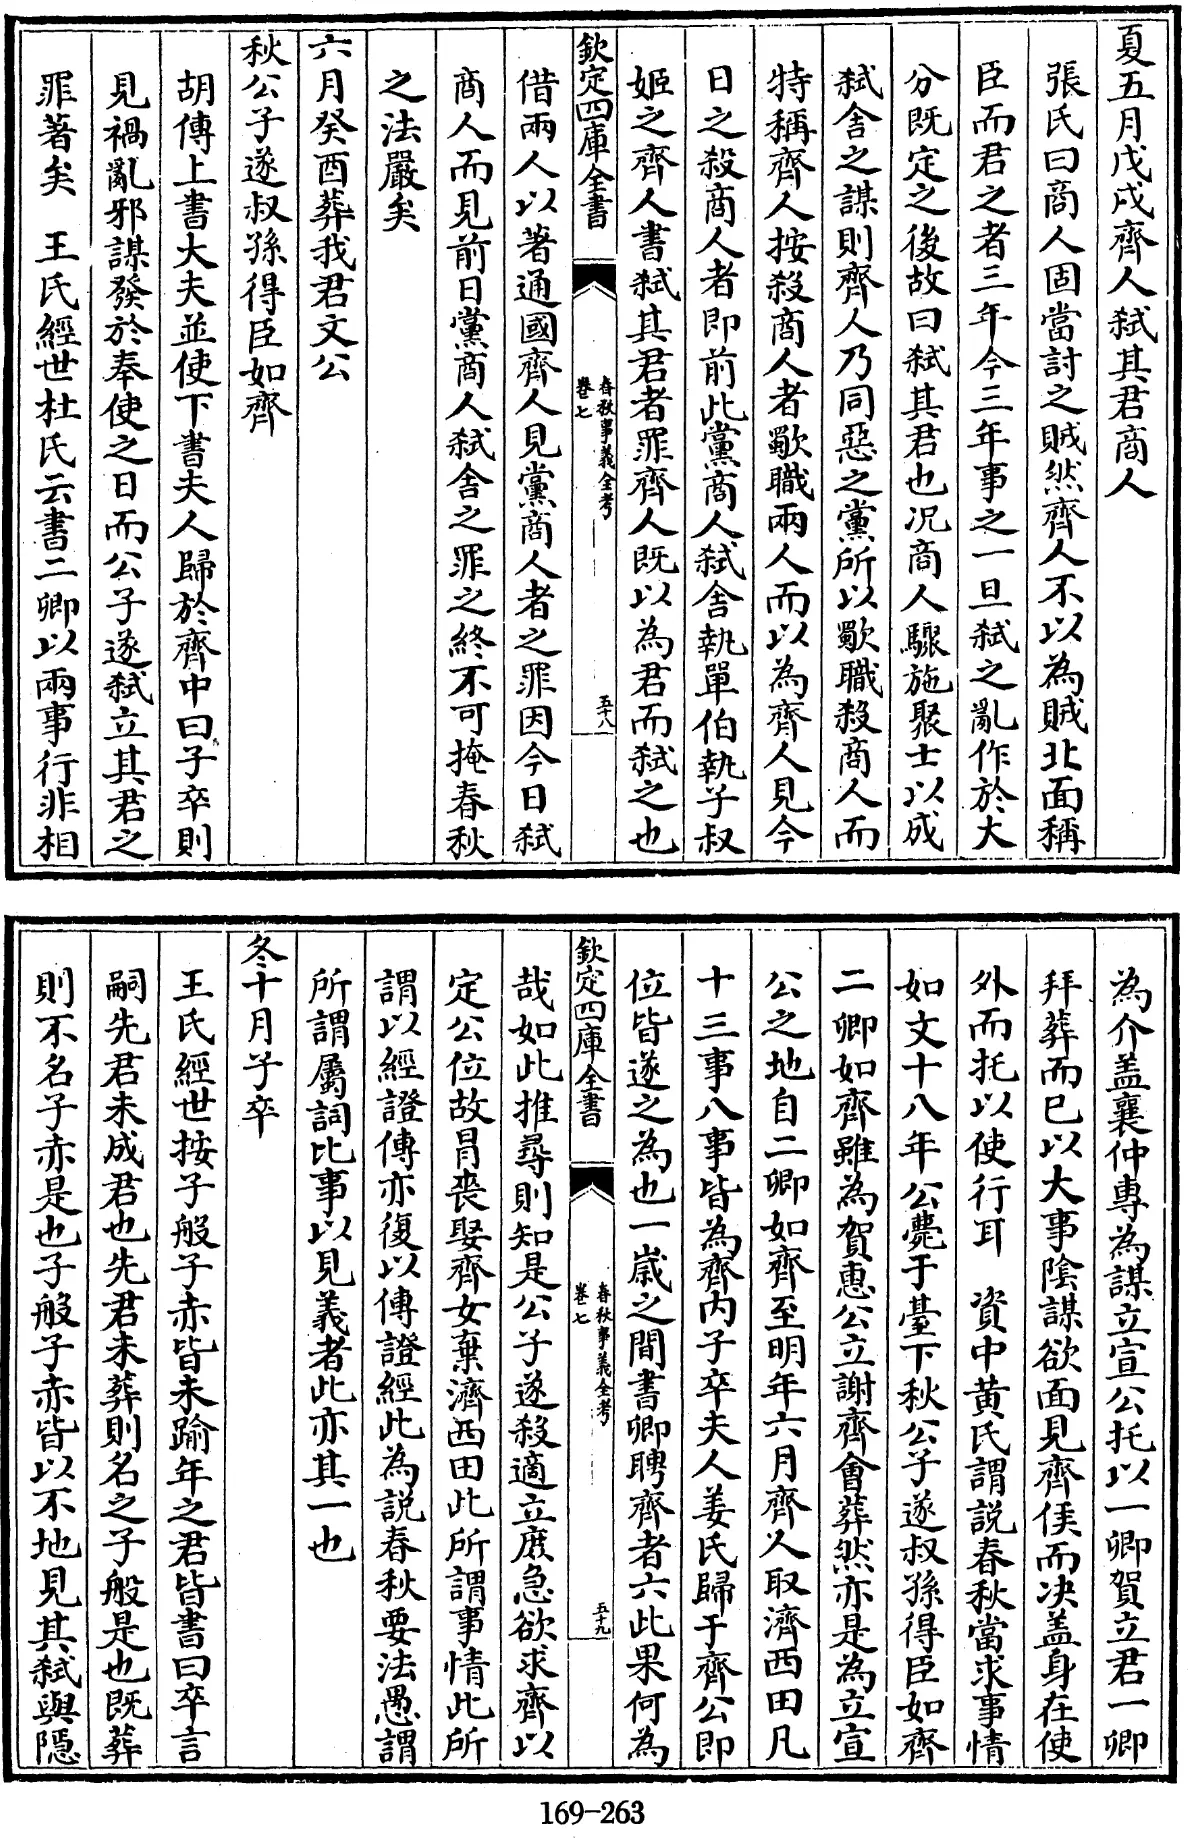 夏五月戊戌齊人弑其君商人
張氏曰商人固當討之賊然齊人不以為賊北面稱
臣而君之者三年今三年事之一旦弑之亂作於大
分既定之後故曰弑其君也况商人驟施聚士以成
弑舍之謀則齊人乃同惡之黨所以歜職殺商人而
特稱齊人按殺商人者歜職兩人而以為齊人見今
日之殺商人者即前此黨商人弑舍執單伯執子叔
姬之齊人書弑其君者罪齊人既以為君而弑之也
欽定四庫全書
春秋事義全考
卷七
五十八
借兩人以著通國齊人見黨商人者之罪因今日弑
商人而見前日黨商人弑舍之罪之終不可掩春秋
之法嚴矣
六月癸酉葬我君文公
秋公子遂叔孫得臣如齊
胡傳上書大夫並使下書夫人歸於齊中曰子卒則
見禍亂邪謀發於奉使之日而公子遂弑立其君之
罪著矣　王氏經世杜氏云書二卿以兩事行非相
為介盖襄仲專為謀立宣公托以一卿賀立君一卿
拜葬而已以大事陰謀欲面見齊侯而决盖身在使
外而托以使行耳　資中黄氏謂説春秋當求事情
如文十八年公薨于臺下秋公子遂叔孫得臣如齊
二卿如齊雖為賀惠公立謝齊會葬然亦是為立宣
公之地自二卿如齊至明年六月齊人取濟西田凡
十三事八事皆為齊内子卒夫人姜氏歸于齊公即
位皆遂之為也一嵗之間書卿聘齊者六此果何為
欽定四庫全書
春秋事義全考
卷七
五十九
哉如此推尋則知是公子遂殺適立庶急欲求齊以
定公位故冐喪娶齊女棄濟西田此所謂事情此所
謂以經證傳亦復以傳證經此為説春秋要法愚謂
所謂屬詞比事以見義者此亦其一也
冬十月子卒
王氏經世按子般子赤皆未踰年之君皆書曰卒言
嗣先君未成君也先君未葬則名之子般是也既葬
則不名子赤是也子般子赤皆以不地見其弑與隱
169-263